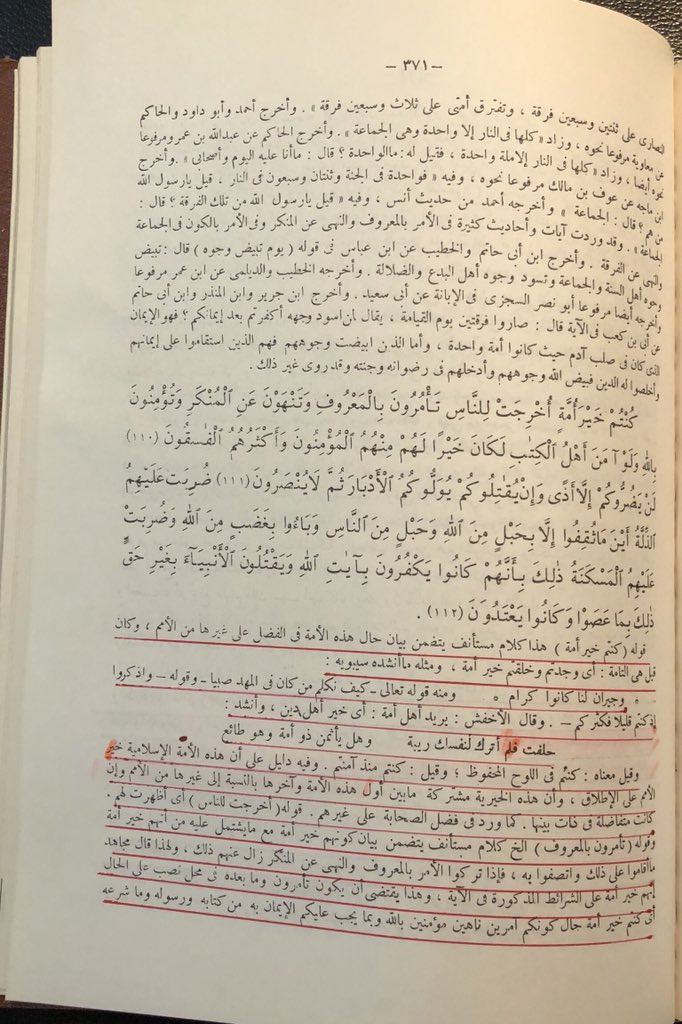 – ٣٧١ –
النصارى على ثنتين وسبعين فرقة ، وتفترق أمتى على ثلاث وسبعين فرقة » . وأخرج أحمد وأبو داود والحاكم
عن معاوية مرفوعا نحوه ، وزاد « كلها فى النار إلا واحدة وهى الجماعة » . وأخرج الحاكم عن عبدالله بن عمر ومرفوعا
نحوه أيضا ، وزاد « كلها فى النار إلا ملة واحدة ، فقيل له : ما الواحدة ؟ قال : ما أنا عليه اليوم وأصحابى » . وأخرج
ابن ماجه عن عوف بن مالك مرفوعا نحوه ، وفيه « فواحدة فى الجنة وثنتان وسبعون فى النار ، قيل يارسول الله
من هم ؟ قال : الجماعة » وأخرجه أحمد من حديث أنس ، وفيه « قيل يارسول الله من تلك الفرقة ؟ قال :
الجماعة » . وقد وردت آيات وأحاديث كثيرة فى الأمر بالمعروف والنهى عن المنكر وفى الأمر بالكون فى الجماعة
والنهى عن الفرقة . وأخرج ابن أبى حاتم والخطيب عن ابن عباس فى قوله ( يوم تبيض وجوه ) قال : تبيض
وجوه أهل السنة والجماعة وتسود وجوه أهل البدع والضلالة . وأخرجه الخطيب والديلمى عن ابن عمر مرفوعا
وأخرجه أيضا مرفوعا أبو نصر السجزى فى الإبانة عن أبى سعيد . وأخرج ابن جرير وابن المنذر وابن أبى حاتم
عن أبى بن كعب فى الآية قال : صاروا فرقتين يوم القيامة ، يقال لمن اسود وجهه أكفرتم بعد إيمانكم ؟ فهو الإيمان
الذى كان فى صلب آدم حيث كانوا أمة واحدة ، وأما الذين ابيضت وجوههم فهم الذين استقاموا على إيمانهم
وأخلصوا له الدين فبيض الله وجوههم وأدخلهم فى رضوانه وجنته وقد روى غير ذلك .
كُنْتُمْ خَيْرَ أُمَّةٍ أُخْرِجَتْ لِلنَّاسِ تَأْمُرُونَ بِالْمَعْرُوفِ وَتَنْهَوْنَ عَنِ الْمُنْكَرِ وَتُؤْمِنُونَ
بِاللهِ وَلَوْ آمَنَ أَهْلُ الْكِتٰبِ لَكَانَ خَيْرًا لَهُمْ مِنْهُمُ الْمُؤْمِنُونَ وَأَكْثَرُهُمُ الْفٰسِقُونَ (١١٠)
لَنْ يَضُرُّوكُمْ إِلَّا أَذًى وَإِنْ يُقٰتِلُوكُمْ يُوَلُّوكُمُ الْأَدْبَارَ ثُمَّ لَا يُنْصَرُونَ (١١١) ضُرِبَتْ عَلَيْهِمُ
الذِّلَّةُ أَيْنَ مَا ثُقِفُوا إِلَّا بِحَبْلٍ مِنَ اللهِ وَحَبْلٍ مِنَ النَّاسِ وَبَاءُوا بِغَضَبٍ مِنَ اللهِ وَضُرِبَتْ
عَلَيْهِمُ الْمَسْكَنَةُ ذٰلِكَ بِأَنَّهُمْ كَانُوا يَكْفُرُونَ بِآيٰتِ اللهِ وَيَقْتُلُونَ الْأَنْبِيَاءَ بِغَيْرِ حَقٍّ
ذٰلِكَ بِمَا عَصَوْا وَكَانُوا يَعْتَدُونَ (١١٢) .
قوله ( كنتم خير أمة ) هذا كلام مستأنف يتضمن بيان حال هذه الأمة فى الفضل على غيرها من الأمم ، وكان
قيل هى التامة : أى وجدتم وخلقتم خير أمة ، ومثله ما أنشده سيبويه :
* وجيران لنا كانوا كرام * ومنه قوله تعالى - كيف نكلم من كان فى المهد صبيا - وقوله - واذكروا
إذ كنتم قليلا فكثركم - . وقال الأخفش : يريد أهل أمة : أى خير أهل دين ، وأنشد :
حلفت فلم أترك لنفسك ريبة وهل يأثمن ذو أمة وهو طائع
وقيل معناه : كنتم فى اللوح المحفوظ ؛ وقيل : كنتم منذ آمنتم . وفيه دليل على أن هذه الأمة الإسلامية خير
الأمم على الإطلاق ، وأن هذه الخيرية مشتركة مابين أول هذه الأمة وآخرها بالنسبة إلى غيرها من الأمم وإن
كانت متفاضلة فى ذات بينها . كما ورد فى فضل الصحابة على غيرهم . قوله ( أخرجت للناس ) أى أظهرت لهم .
وقوله ( تأمرون بالمعروف ) الخ كلام مستأنف يتضمن بيان كونهم خير أمة مع مايشتمل عليه من أنهم خير أمة
ماأقاموا على ذلك واتصفوا به ، فإذا تركوا الأمر بالمعروف والنهى عن المنكر زال عنهم ذلك ، ولهذا قال مجاهد
إنهم خير أمة على الشرائط المذكورة فى الآية ، وهذا يقتضى أن يكون تأمرون وما بعده فى محل نصب على الحال
أى كنتم خير أمة حال كونكم آمرين ناهين مؤمنين بالله وبما يجب عليكم الإيمان به من كتابه ورسوله وما شرعه